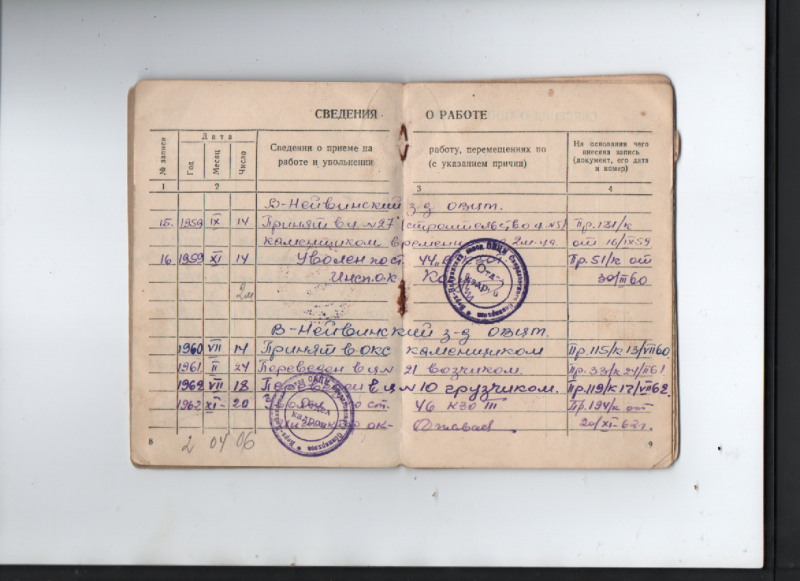 СВЕДЕНИЯ О РАБОТЕ
№ записи
Дата
Год
Месяц
Число
Сведения о приеме на работу, перемещениях по
работе и увольнении (с указанием причин)
На основании чего
внесена запись
(документ, его дата
и номер)
1 2 3 4
В-Нейвинский з-д ОВЦМ.
15. 1959 IX 14 Принят в ц. №27 (строительство ц. №5) Пр. 131/к
каменщиком времени 2 м-ца от 16/IX59
16. 1959 XI 14 Уволен по ст. 44 Пр. 51/к от
Инсп. ОК 30/III60
2м
В-Нейвинский з-д ОВЦМ.
1960 VII 14 Принят в ОКС каменщиком Пр. 115/к 13/VII60.
1961 II 24 Переведен в ц. № 21 возчиком. Пр. 33/к 24/II61.
1962 VII 18 Переведен в ц. № 10 грузчиком. Пр. 119/к 17/VII62.
1962 XI- 20 ст. 46 КЗО Пр. 194/к от
ОК- 20/XI-62г.
Отдел
кадров
8 2 04 06 9